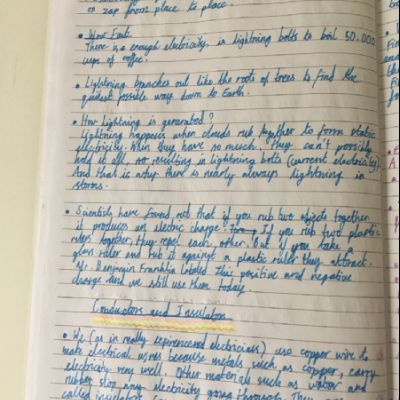 or zap from place to place.
• Wow Fact
There is a enough electricity in lightning bolts to boil 50,000
cups of coffee.
• Lightning branches out like the roots of trees to find the
quickest possible way down to Earth.
• How lightning is generated?
Lightning happens when clouds rub together to form static
electricity. When they have so much, They can't possibly
hold it all, so resulting in lightning bolts (current electricity).
And that is why there is nearly always lightning in
storms.
• Scientists have found out that if you rub two objects together
it produces an electric charge. If you rub two plastic
rulers together they repel each other. But if you take a
glass ruler and rub it against a plastic ruler they attract.
Mr. Benjamin Franklin labeled this positive and negative
charge and we still use them today.
Conductors and Insulators
• We (as in really experienced electricians) use copper wire to
make electrical wires because metals such as copper, carry
electricity very well. Other materials such as water and
rubber stop any electricity going through. They are
called insulators